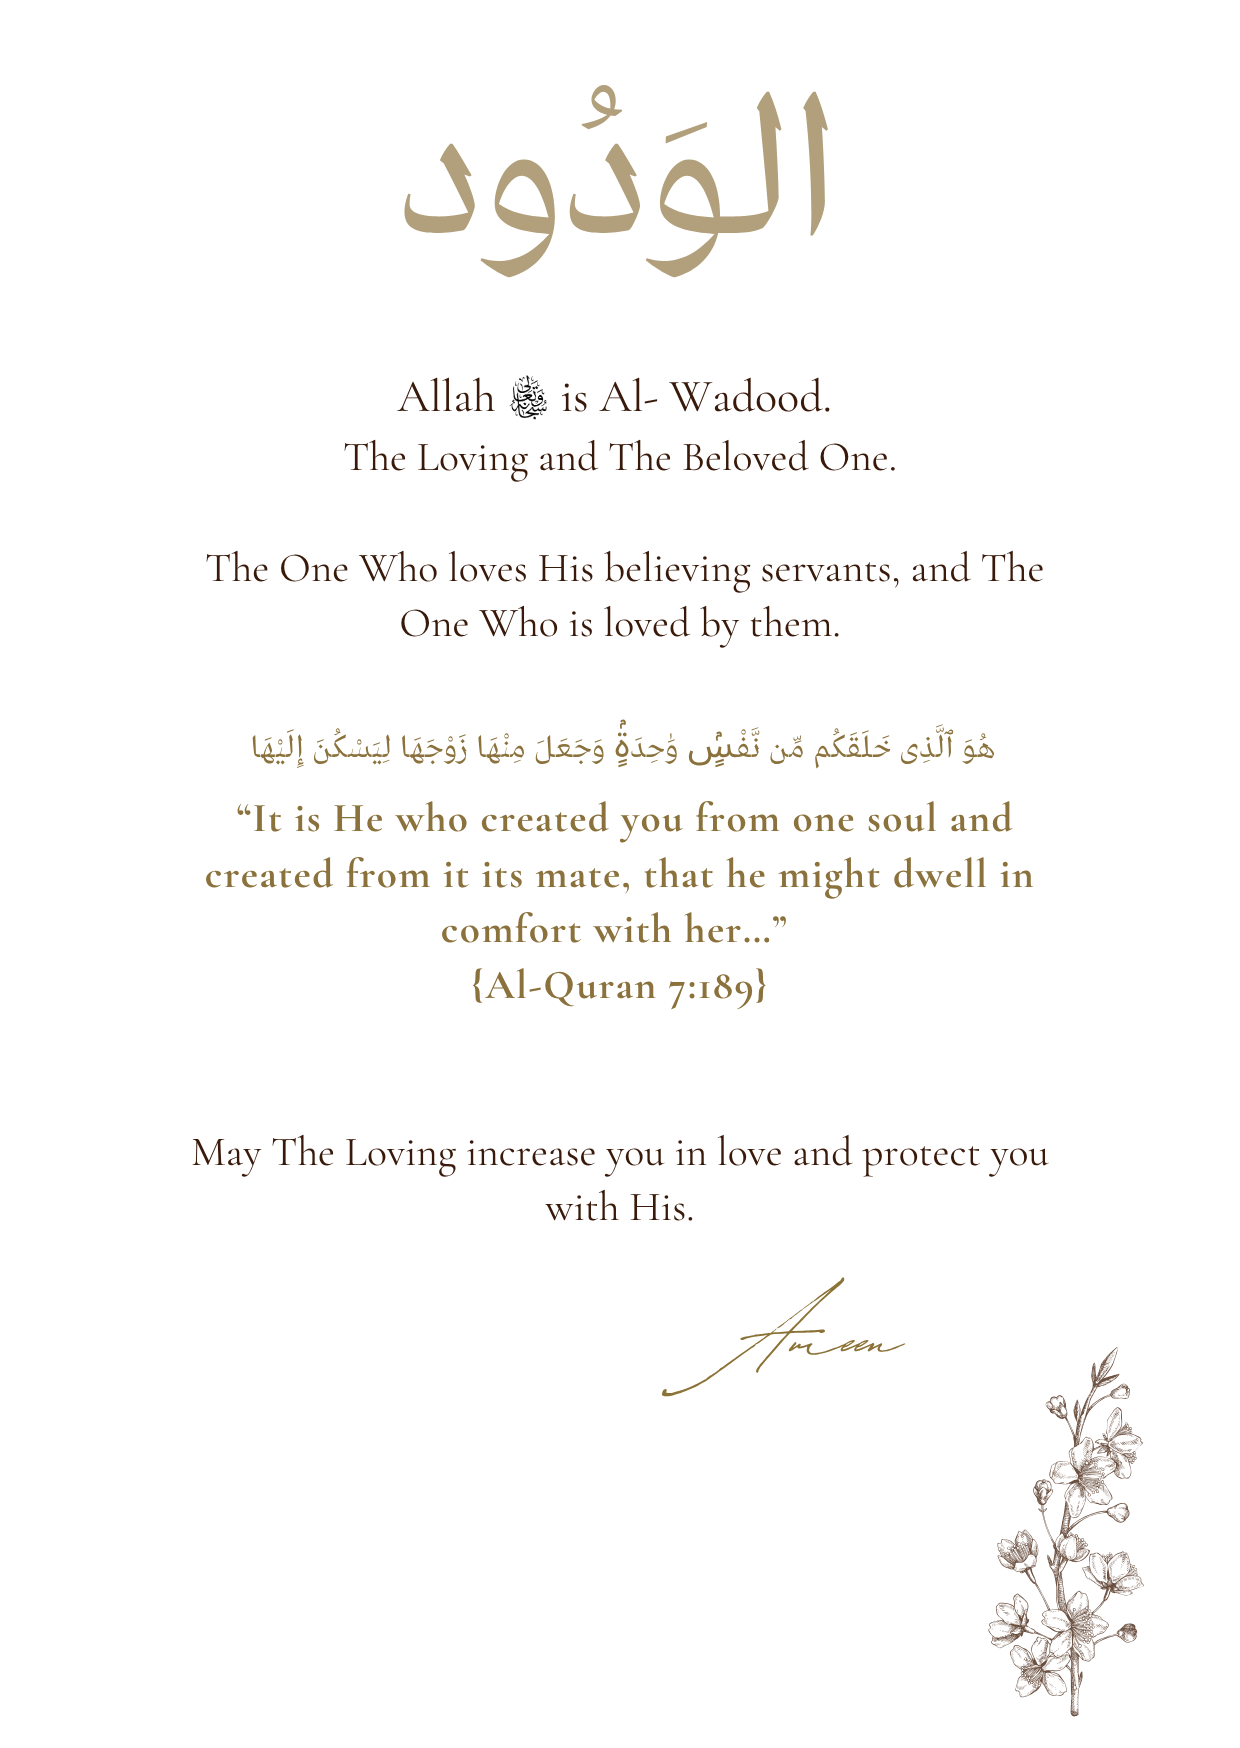 الوَدُود
Allah ﷾ is Al- Wadood.
The Loving and The Beloved One.
The One Who loves His believing servants, and The
One Who is loved by them.
هُوَ ٱلَّذِى خَلَقَكُم مِّن نَّفْسٍۢ وَٰحِدَةٍۢ وَجَعَلَ مِنْهَا زَوْجَهَا لِيَسْكُنَ إِلَيْهَا
“It is He who created you from one soul and
created from it its mate, that he might dwell in
comfort with her...”
{Al-Quran 7:189}
May The Loving increase you in love and protect you
with His.
Ameen